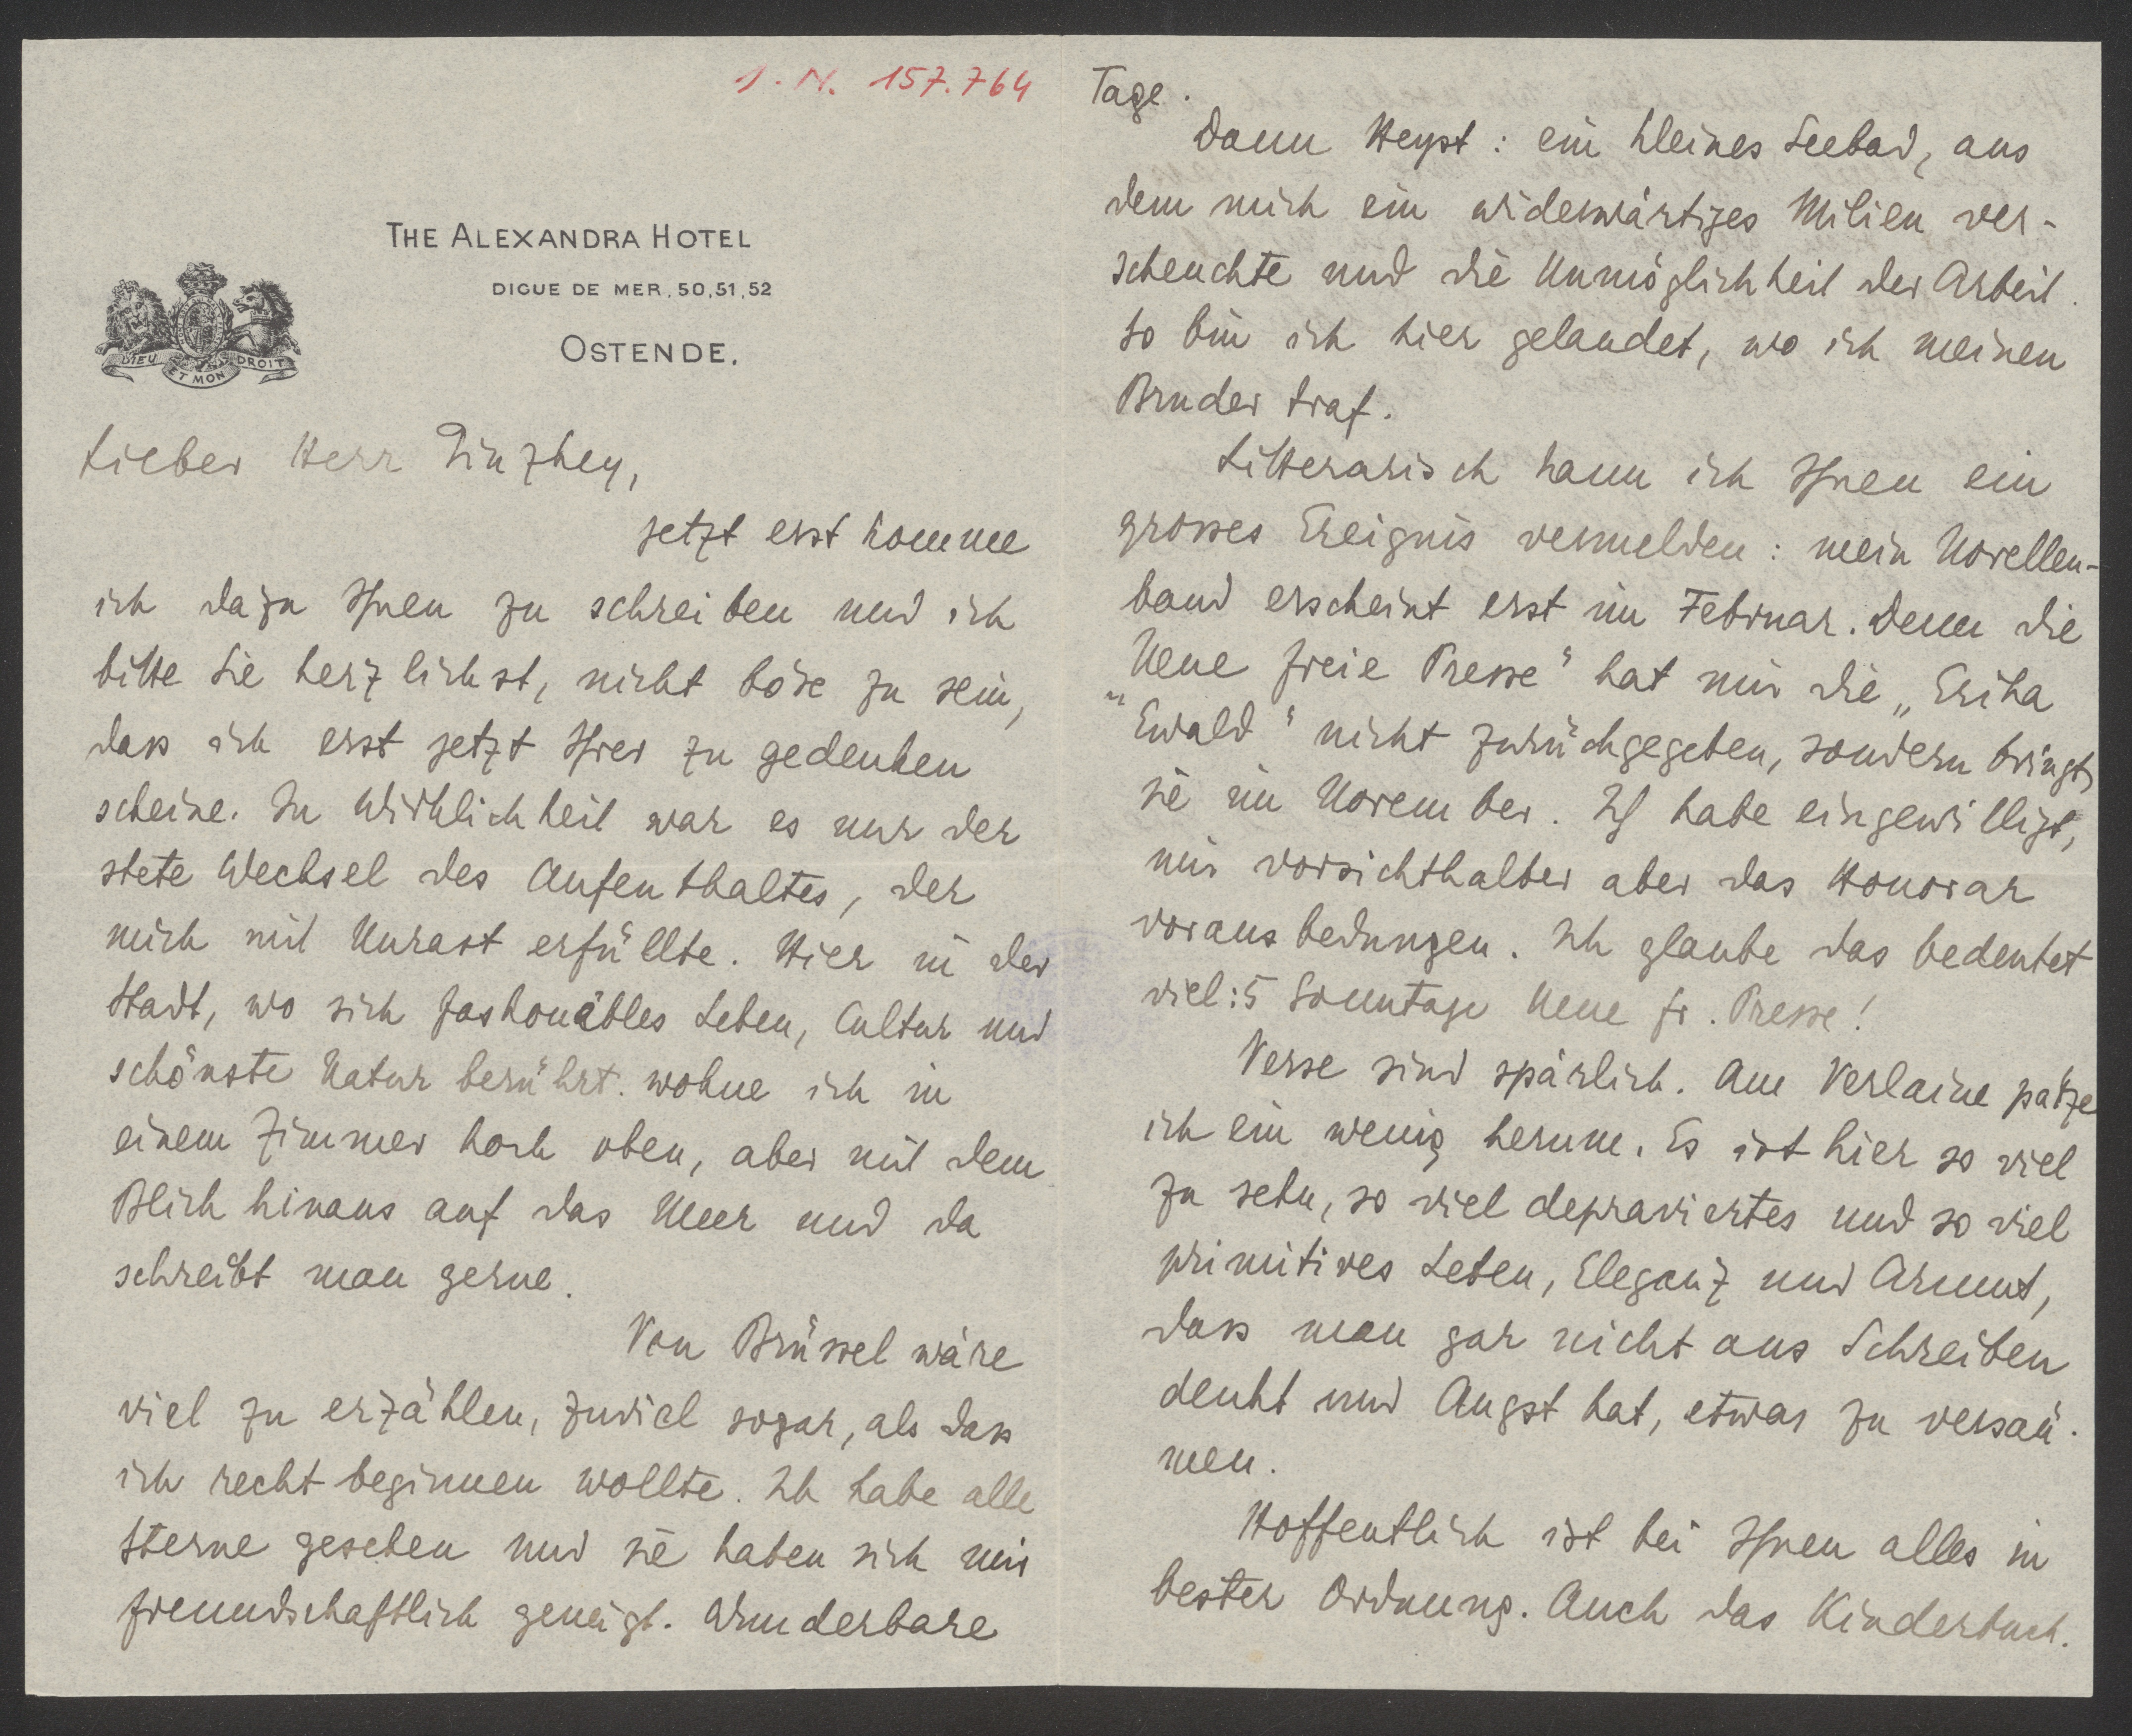 J. N. 157.764
THE ALEXANDRA HOTEL
DIGUE DE MER, 50, 51, 52
OSTENDE.
DIEU ET MON DROIT
Lieber Herr Ginzkey,
jetzt erst komme
ich dazu Ihnen zu schreiben und ich
bitte Sie herzlichst, nicht böse zu sein,
dass ich erst jetzt Ihrer zu gedenken
scheine. In Wirklichkeit war es nur der
stete Wechsel des Aufenthaltes, der
mich mit Unrast erfüllte. Hier in der
Stadt, wo sich fashonables Leben, Cultur und
schönste Natur berührt. wohne ich in
einem Zimmer hoch oben, aber mit dem
Blick hinaus auf das Meer und da
schreibt man gerne.
Von Brüssel wäre
viel zu erzählen, zuviel sogar, als dass
ich recht beginnen wollte. Ich habe alle
Sterne gesehen und sie haben sich mir
freundschaftlich geneigt. Wunderbare
Tage.
Dann Heyst: ein kleines Seebad, aus
dem mich ein widerwärtiges Milieu ver-
scheuchte und die Unmöglichkeit der Arbeit.
So bin ich hier gelandet, wo ich meinen
Bruder traf.
Litterarisch kann ich Ihnen ein
grosses Ereignis vermelden: mein Novellen-
band erscheint erst im Februar. Denn die
"Neue freie Presse" hat mir die „Erika
Ewald" nicht zurückgegeben, sondern bringt
sie im November. Ich habe eingewilligt,
mir vorsichthalber aber das Honorar
voraus bedungen. Ich glaube das bedeutet
viel: 5 Sonntage Neue fr. Presse!
Verse sind spärlich. Am Verlaine patze
ich ein wenig herum. Es ist hier so viel
zu sehn, so viel depraviertes und so viel
primitives Leben, Eleganz und Armut,
dass man gar nicht ans Schreiben
denkt und Angst hat, etwas zu versäu-
men.
Hoffentlich ist bei Ihnen alles in
bester Ordnung. Auch das Kinderbuch.